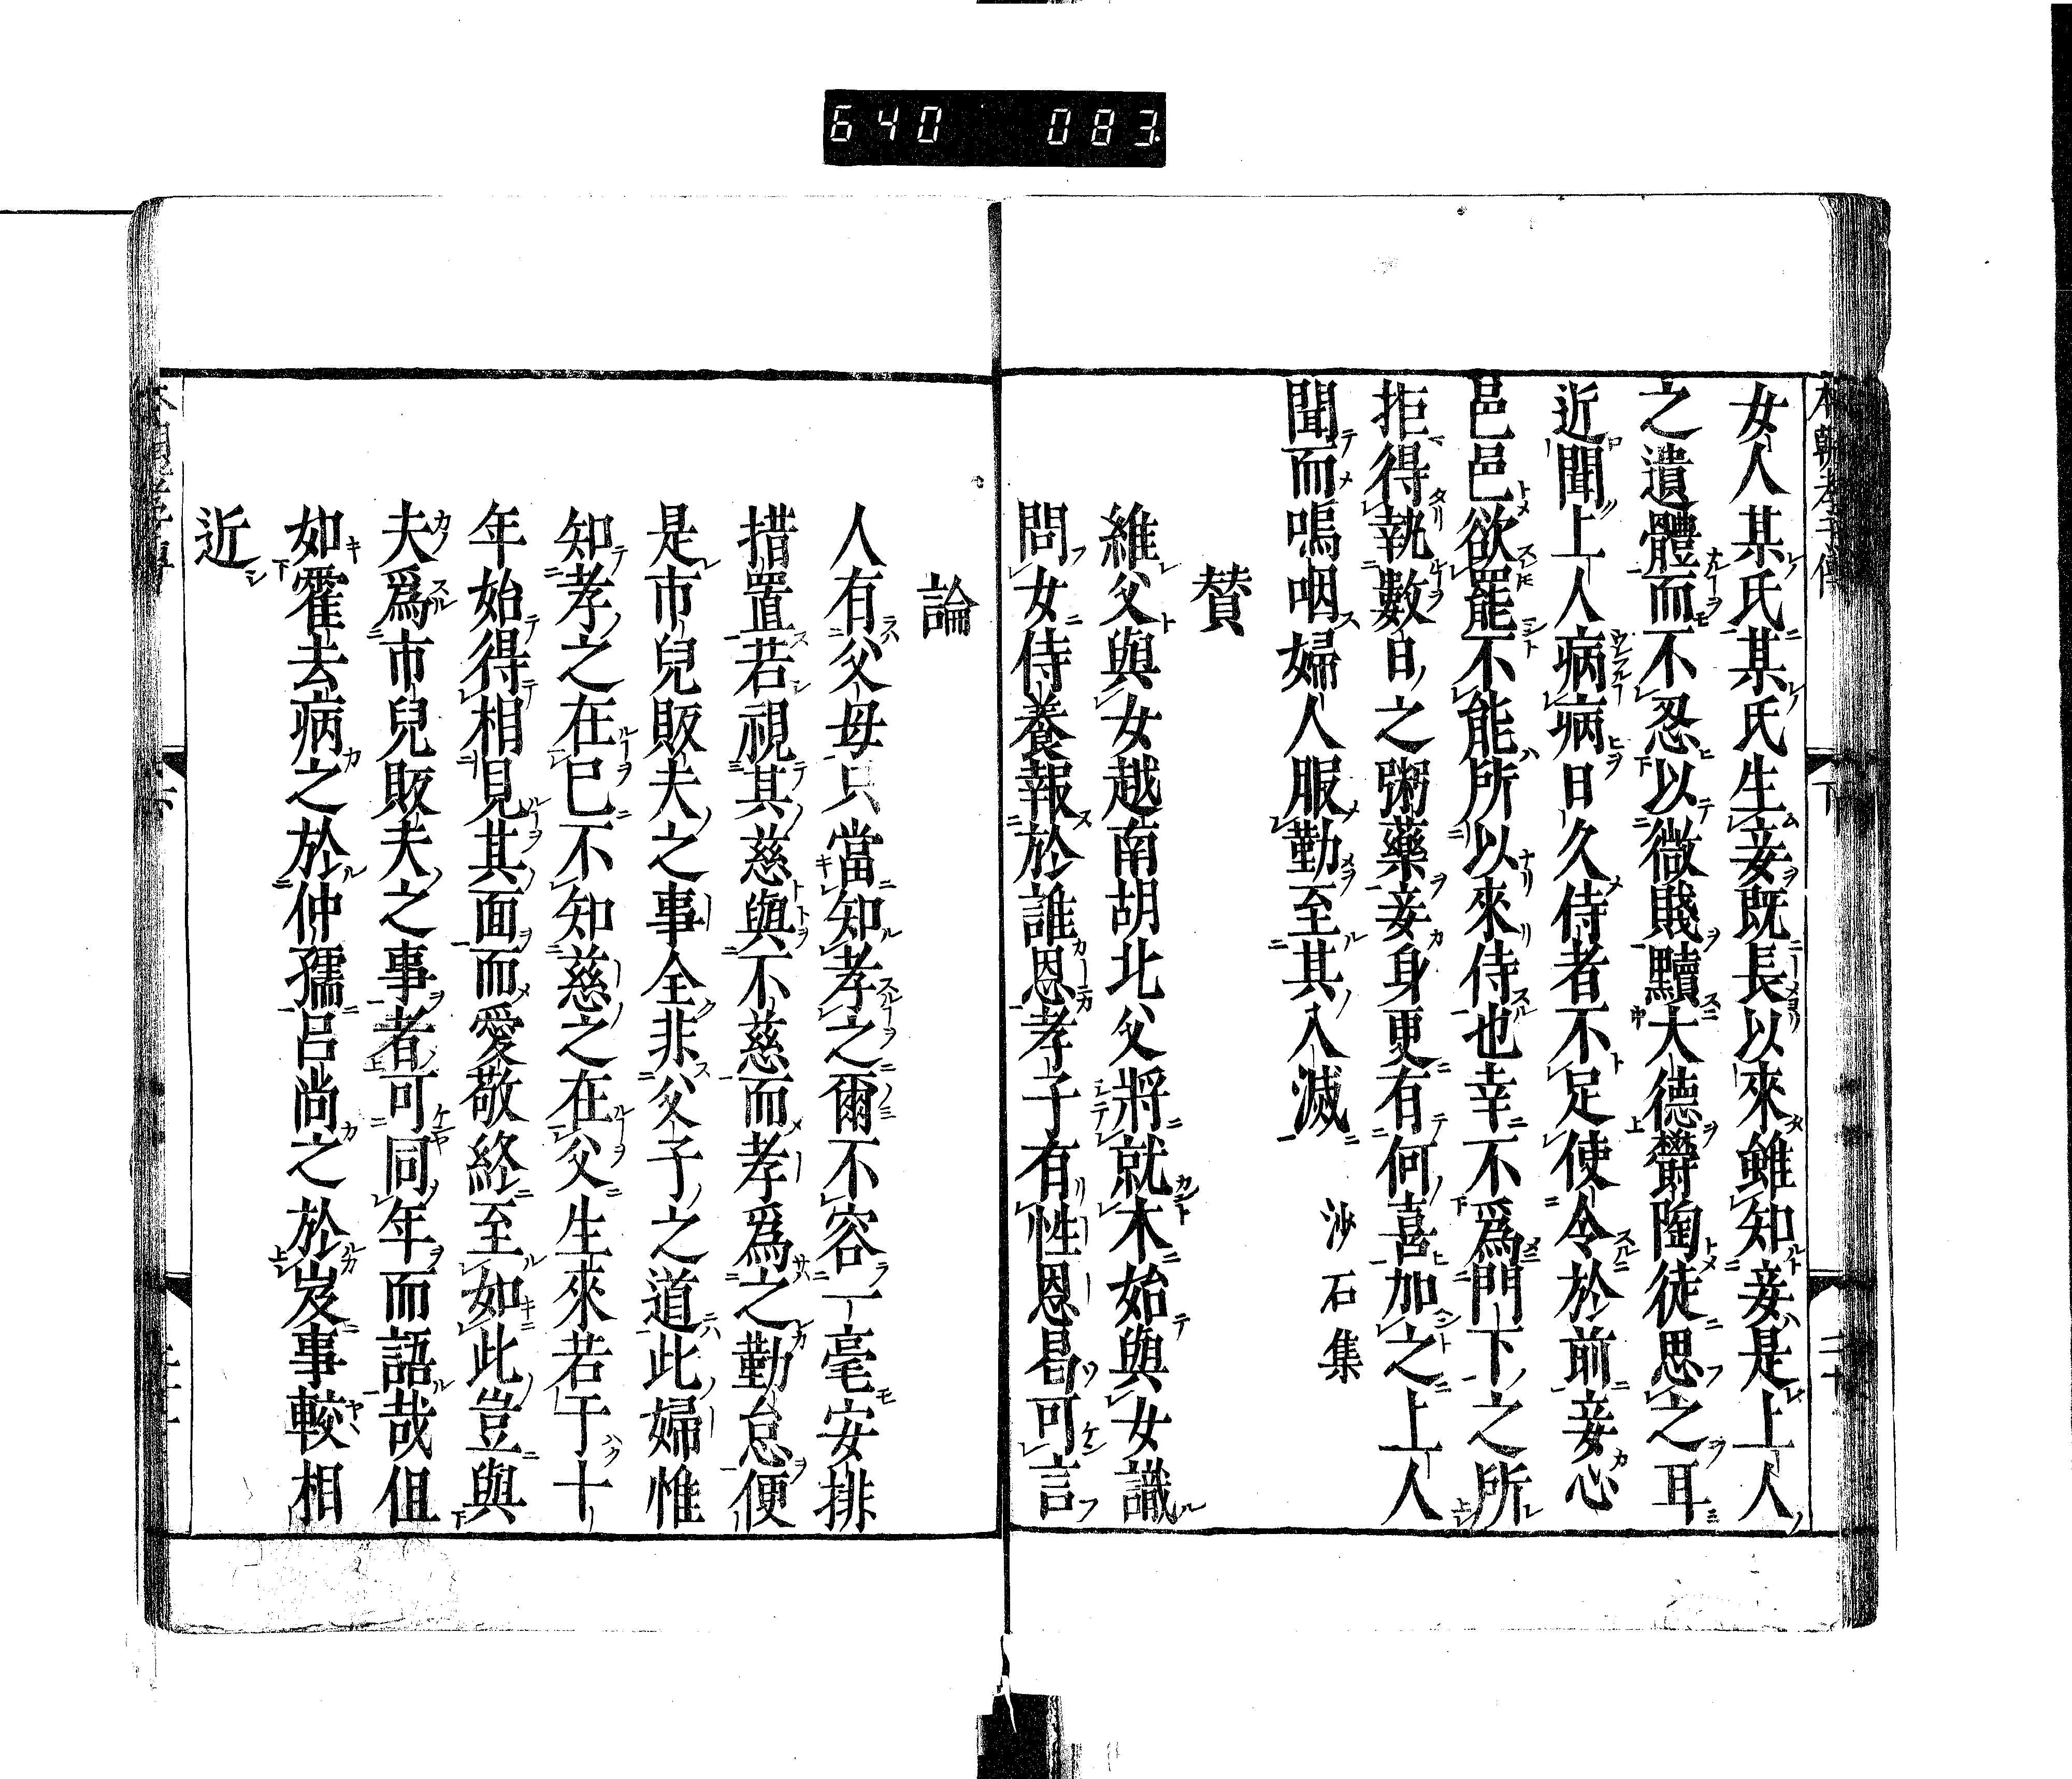 640 083
本朝孝子傳 下 二十
女人某氏某氏生妾既長以來雖知妾是上人
之遺體而不忍以微賤黷大德欝陶徒思之耳
近聞上人病病日久侍者不足使令於前妾心
邑邑欲罷不能所以來侍也幸不爲門下之所
拒得執數日之粥藥妾身更有何喜加之上人
聞而嗚咽婦人服勤至其入滅 沙石集
賛
維父與女越南胡北父將就木始與女識
問女侍養報於誰恩孝子有性恩曷可言
論
人有父母只當知孝之爾不容一毫安排
措置若視其慈與不慈而孝爲之勤怠便
是市兒販夫之事全非父子之道此婦惟
知孝之在已不知慈之在父生來若干十
年始得相見其面而愛敬終至如此豈與
夫爲市兒販夫之事者可同年而語哉伹
如霍去病之於仲孺呂尚之於岌事較相
近